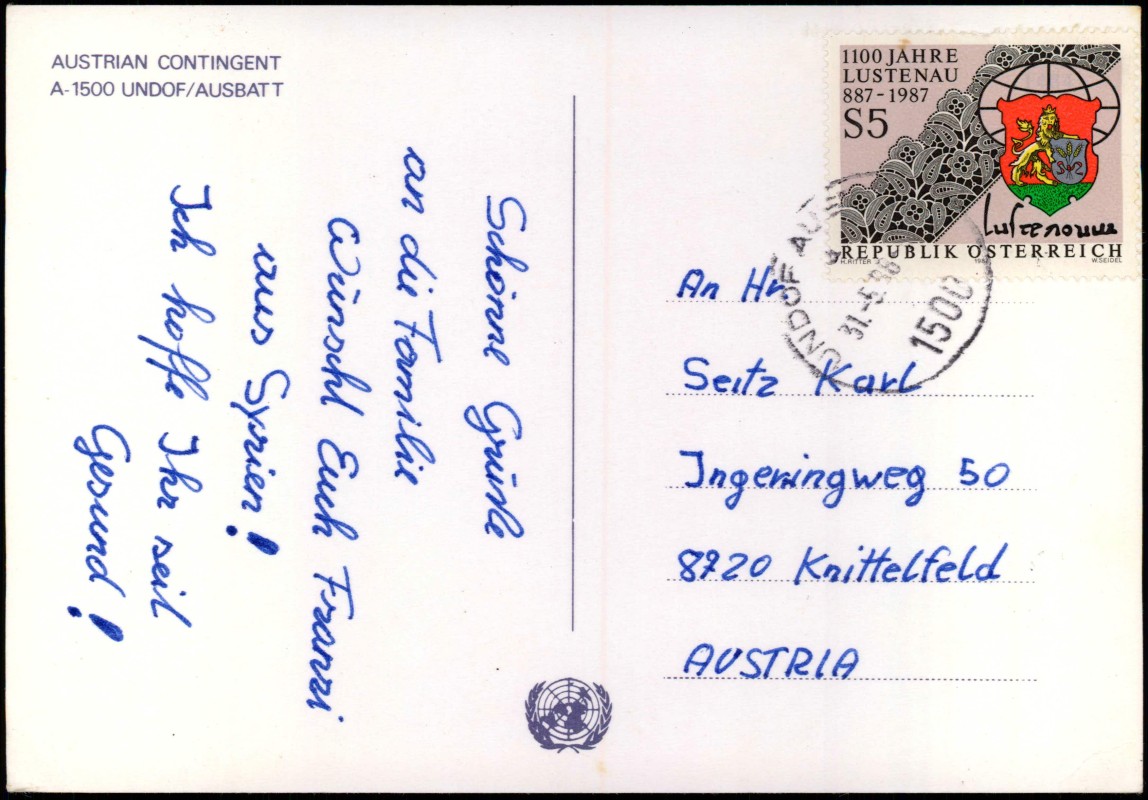 AUSTRIAN CONTINGENT
A-1500 UNDOF/AUSBATT
Schönne Grüße
an die Familie
Wünschl Euch Franzi
aus Syrien!
Ich hoffe Ihr seil
Gesund!
1100 JAHRE
LUSTENAU
887-1987
S5
Lustenau
REPUBLIK ÖSTERREICH
H.RITTER 1987 W.SEIDEL
UNDOF
31.-5.88
1500
An Hr.
Seitz Karl
Ingeringweg 50
8720 Knittelfeld
AUSTRIA